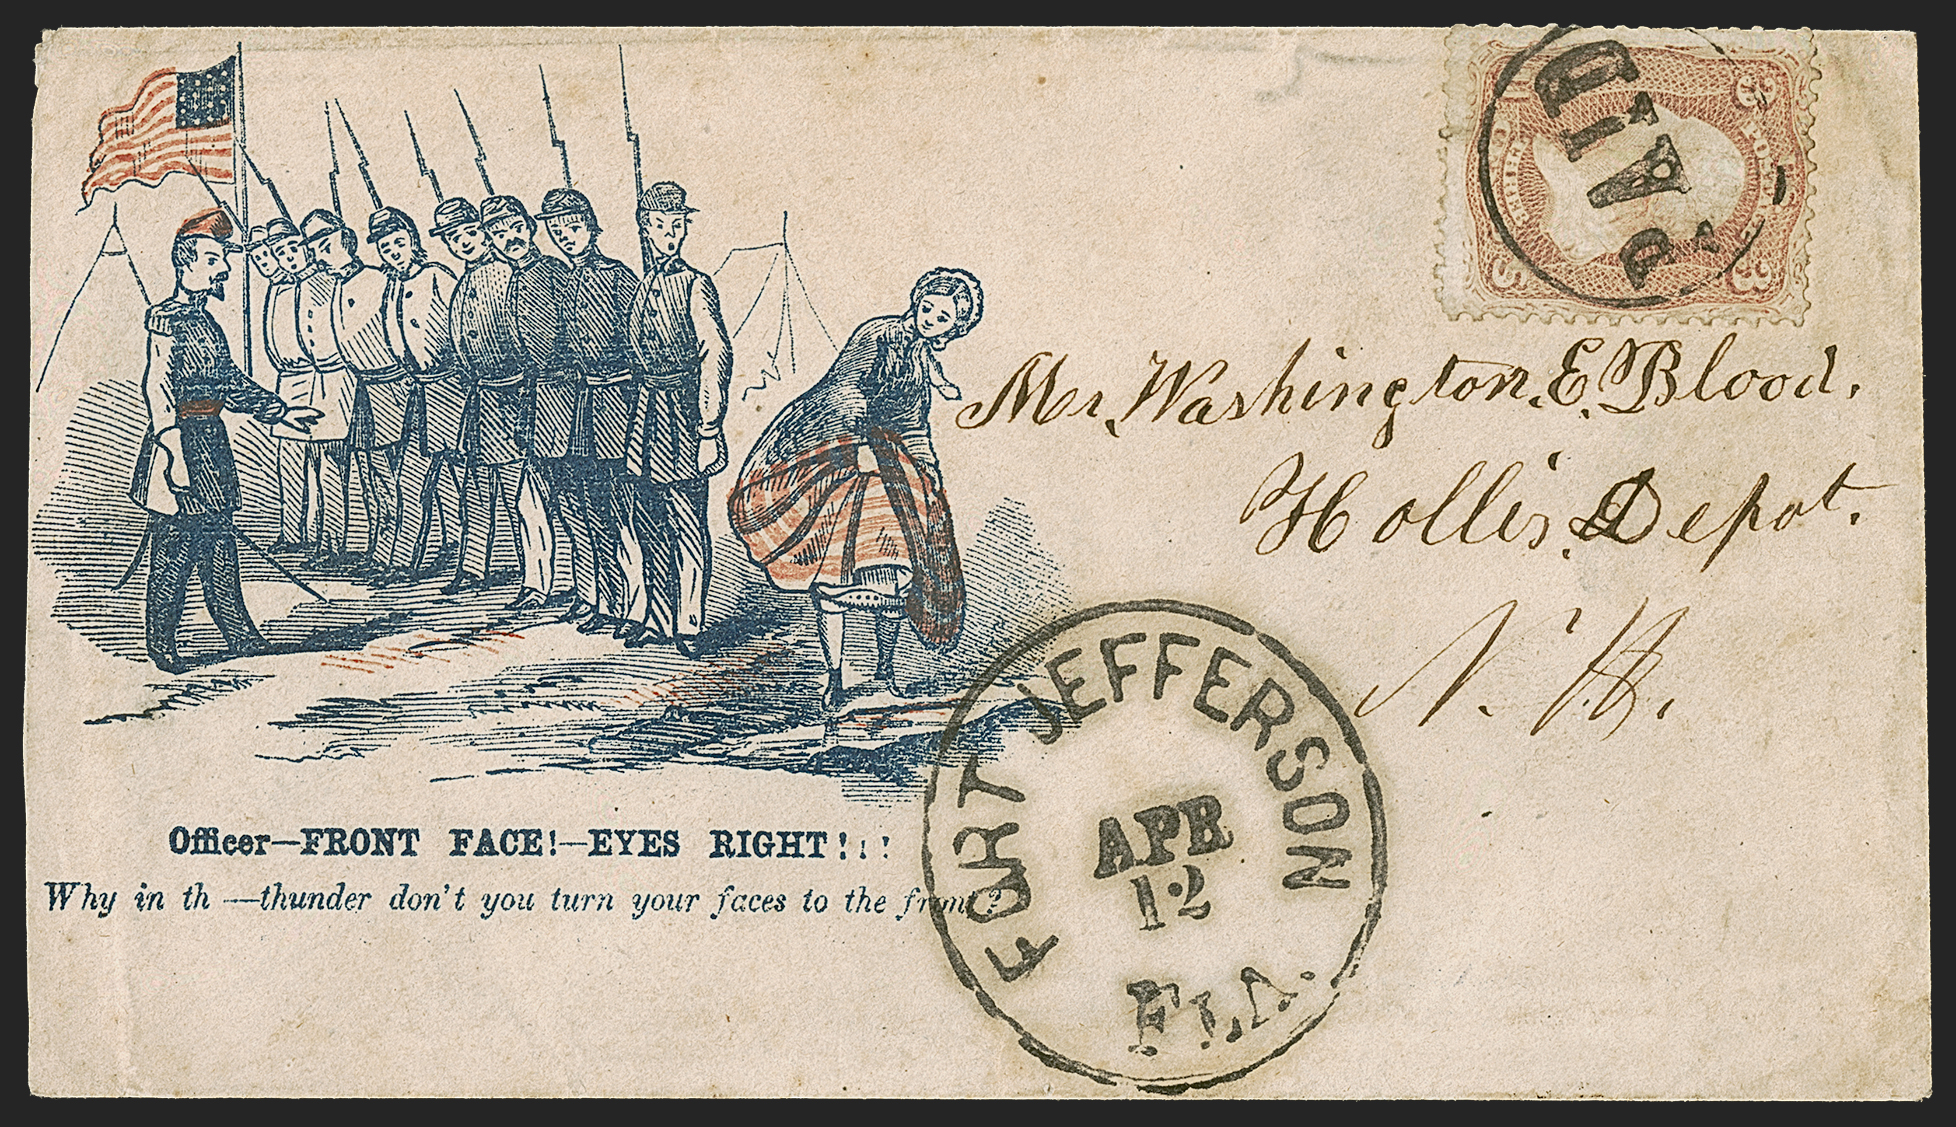 PAID
3
3
Mr. Washington. E. Blood.
Hollis. Depot.
N. H.
Officer—FRONT FACE!—EYES RIGHT!!!
Why in th—thunder don't you turn your faces to the front?
FORT JEFFERSON
APR
12
FLA.